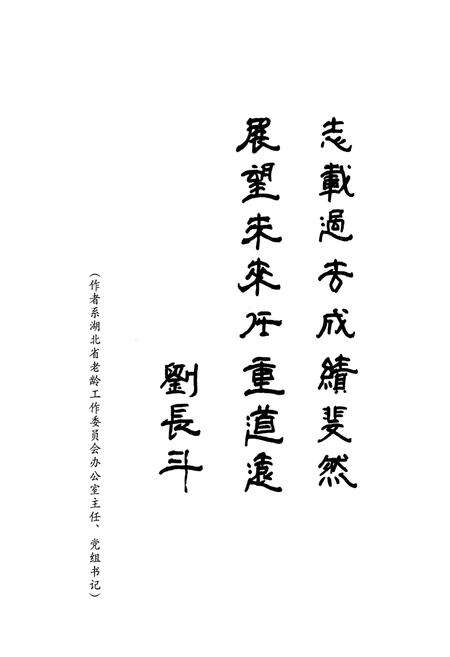 志載過去成績斐然
展望未來任重道遠
劉長斗
（作者系湖北省老龄工作委员会办公室主任、党组书记）